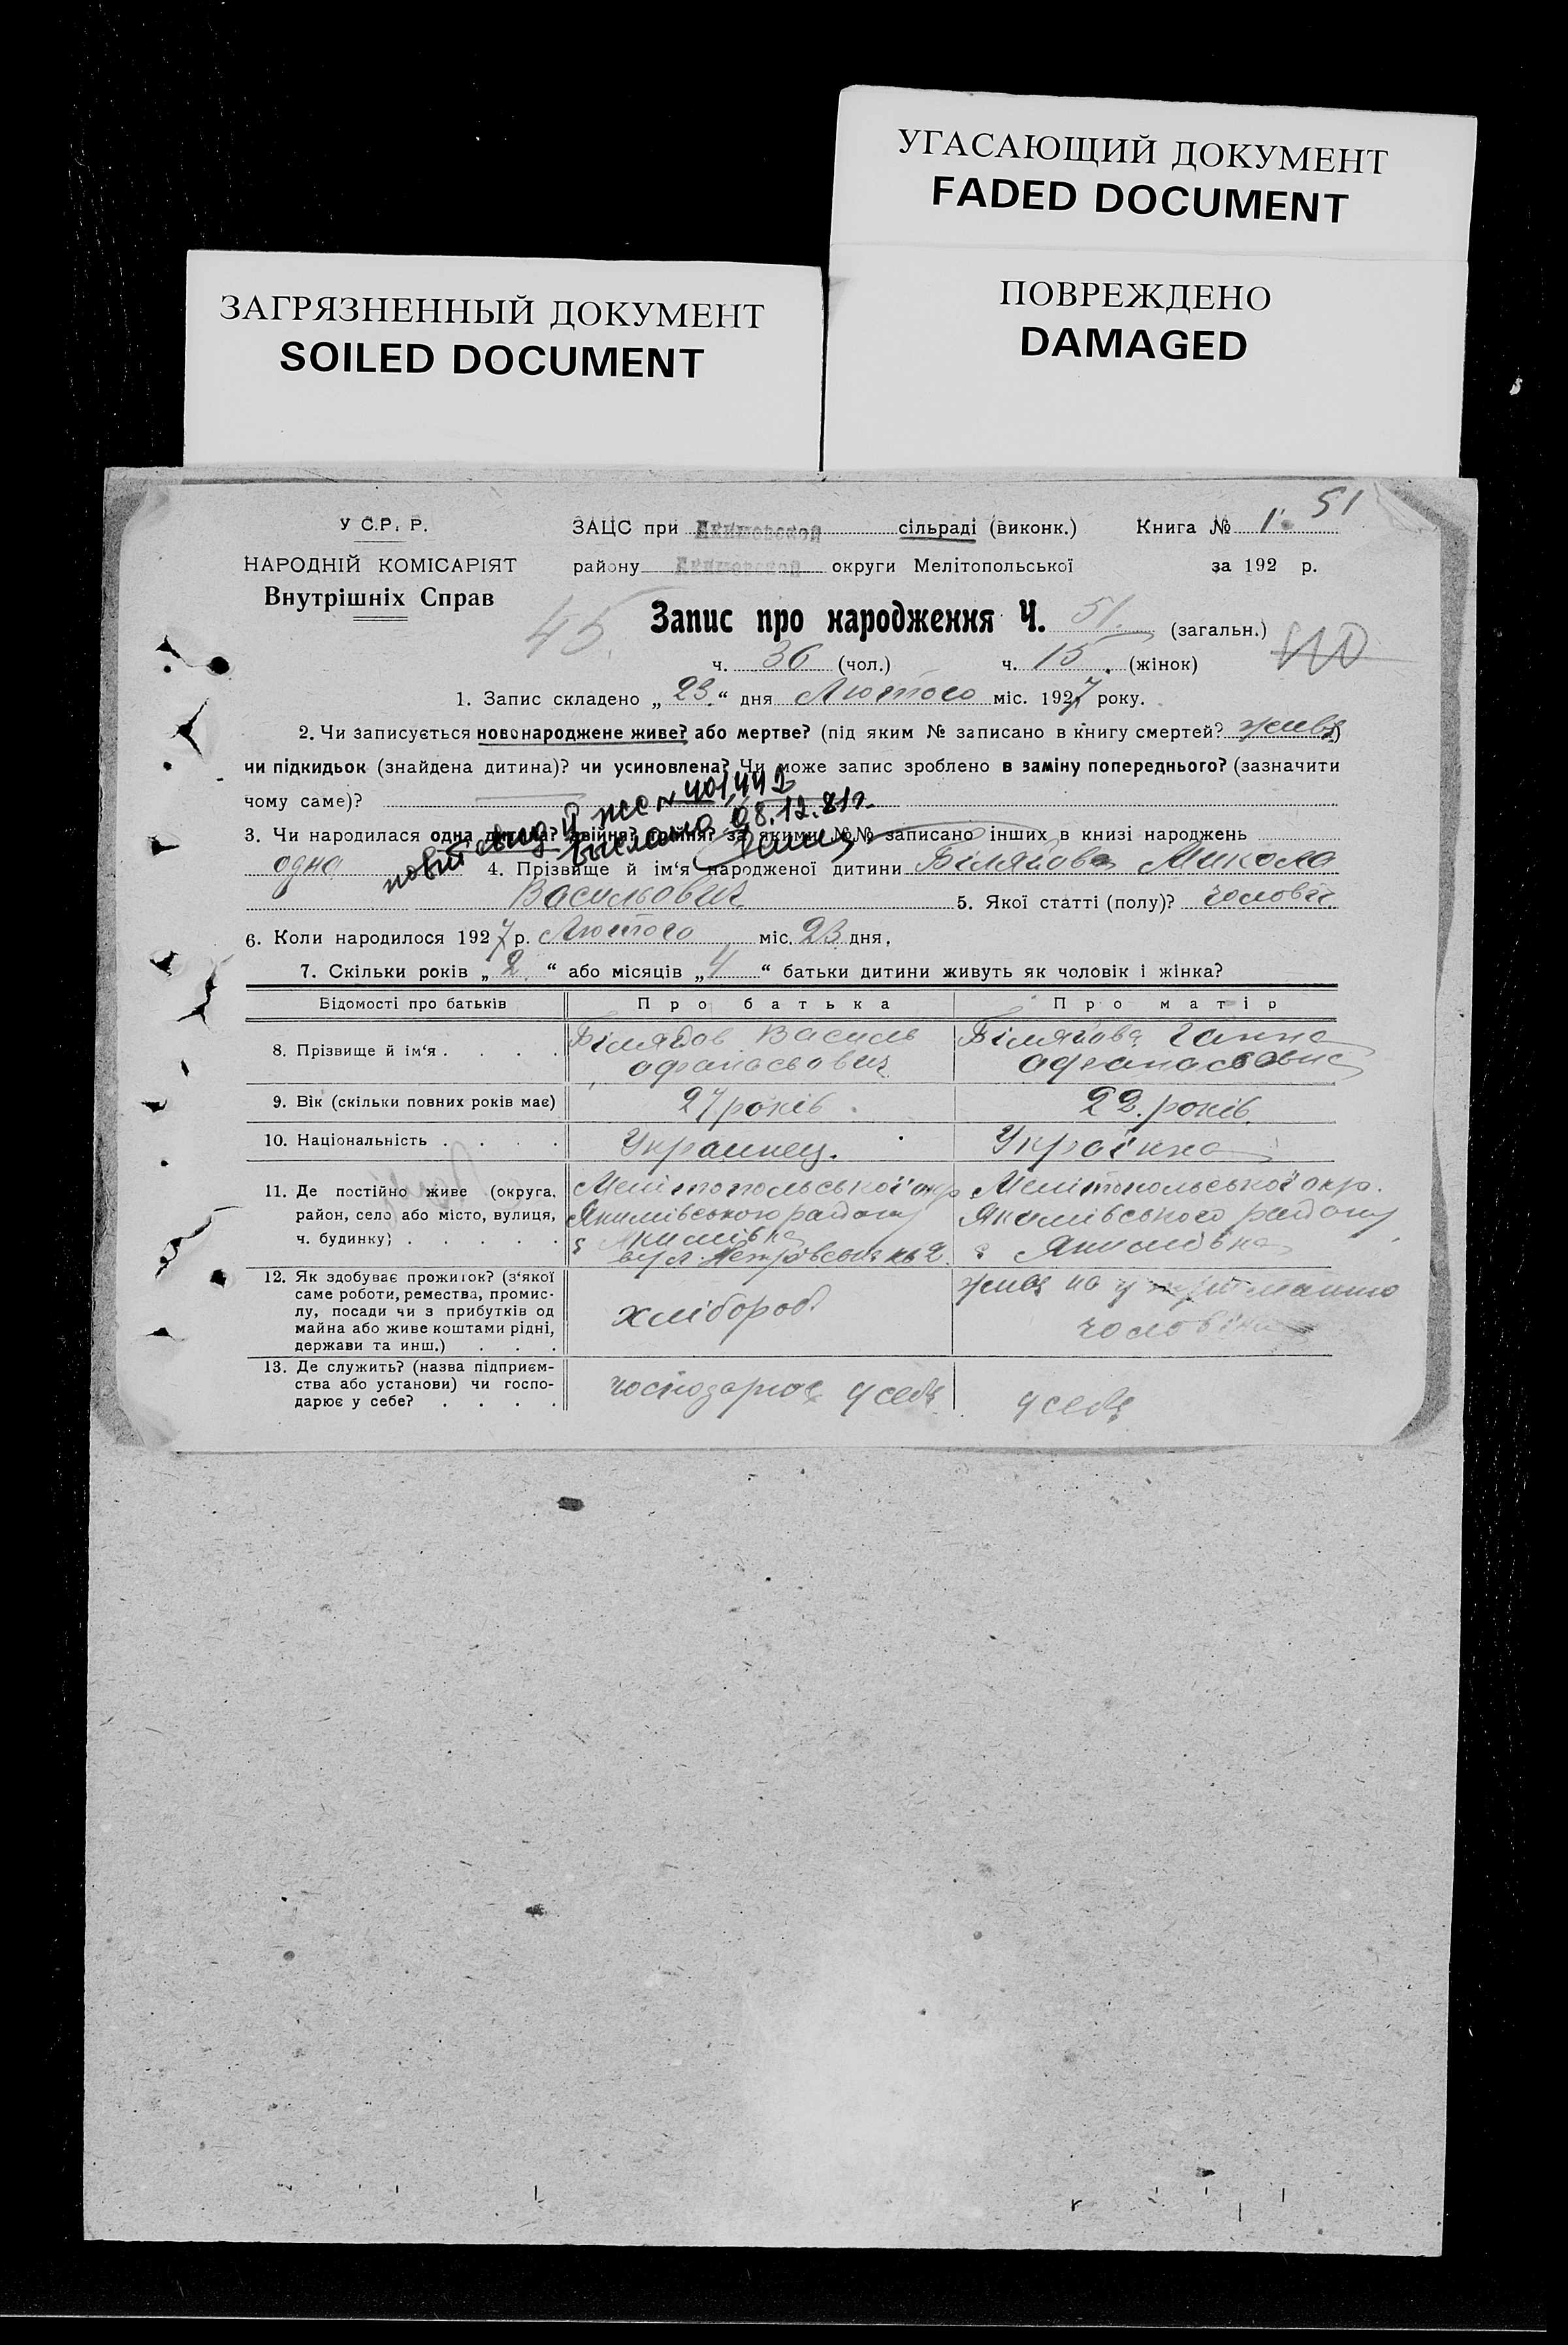 УГАСАЮЩИЙ ДОКУМЕНТ
FADED DOCUMENT
ЗАГРЯЗНЕННЫЙ ДОКУМЕНТ
SOILED DOCUMENT
ПОВРЕЖДЕНО
DAMAGED
51
У С.Р. Р.
ЗАЦС при сільраді (виконк.) Книга № 1.
НАРОДНІЙ КОМІСАРІЯТ
району округи Мелітопольської за 192 р.
Внутрішніх Справ
45.
Запис про народження Ч. 51. (загальн.)
ч. 36 (чол.) ч. 15. (жінок)
1. Запис складено „ 23. “ дня Лютого міс. 1927 року.
2. Чи записується новонароджене живе? або мертве? (під яким № записано в книгу смертей? живе)
чи підкидьок (знайдена дитина)? чи усиновлена? Чи може запис зроблено в заміну попереднього? (зазначити
чому саме)?
№ 401442
выслано 08.12.81г.
3. Чи народилася одна дитина? двійня? тройня? за якими №№ записано інших в книзі народжень
одна 4. Прізвище й ім‘я народженої дитини Микола
Васильович 5. Якої статті (полу)?
6. Коли народилося 1927 р. Лютого міс. 23 дня.
7. Скільки років „ 2 “ або місяців „ 4 “ батьки дитини живуть як чоловік і жінка?
Відомості про батьків Про батька Про матір
8. Прізвище й ім‘я . . . . Василь Ганна
9. Вік (скільки повних років має) 27 років 22. років.
10. Національність . . . . Украинец. Українка
11. Де постійно живе (округа, Мелітопольської окр Мелітопольської окр.
район, село або місто, вулиця, Якимівського району Якимівського району
ч. будинку) . . . . . Якимівка Якимівка
вул. № 2
12. Як здобуває прожиток? (з‘якої
саме роботи, ремества, промис-
лу, посади чи з прибутків од
майна або живе коштами рідні,
держави та инш.) . . .
хлібороб
живе на утриманню
чоловіка
13. Де служить? (назва підприєм-
ства або установи) чи госпо-
дарює у себе? . . . .
господарює у себе у себе